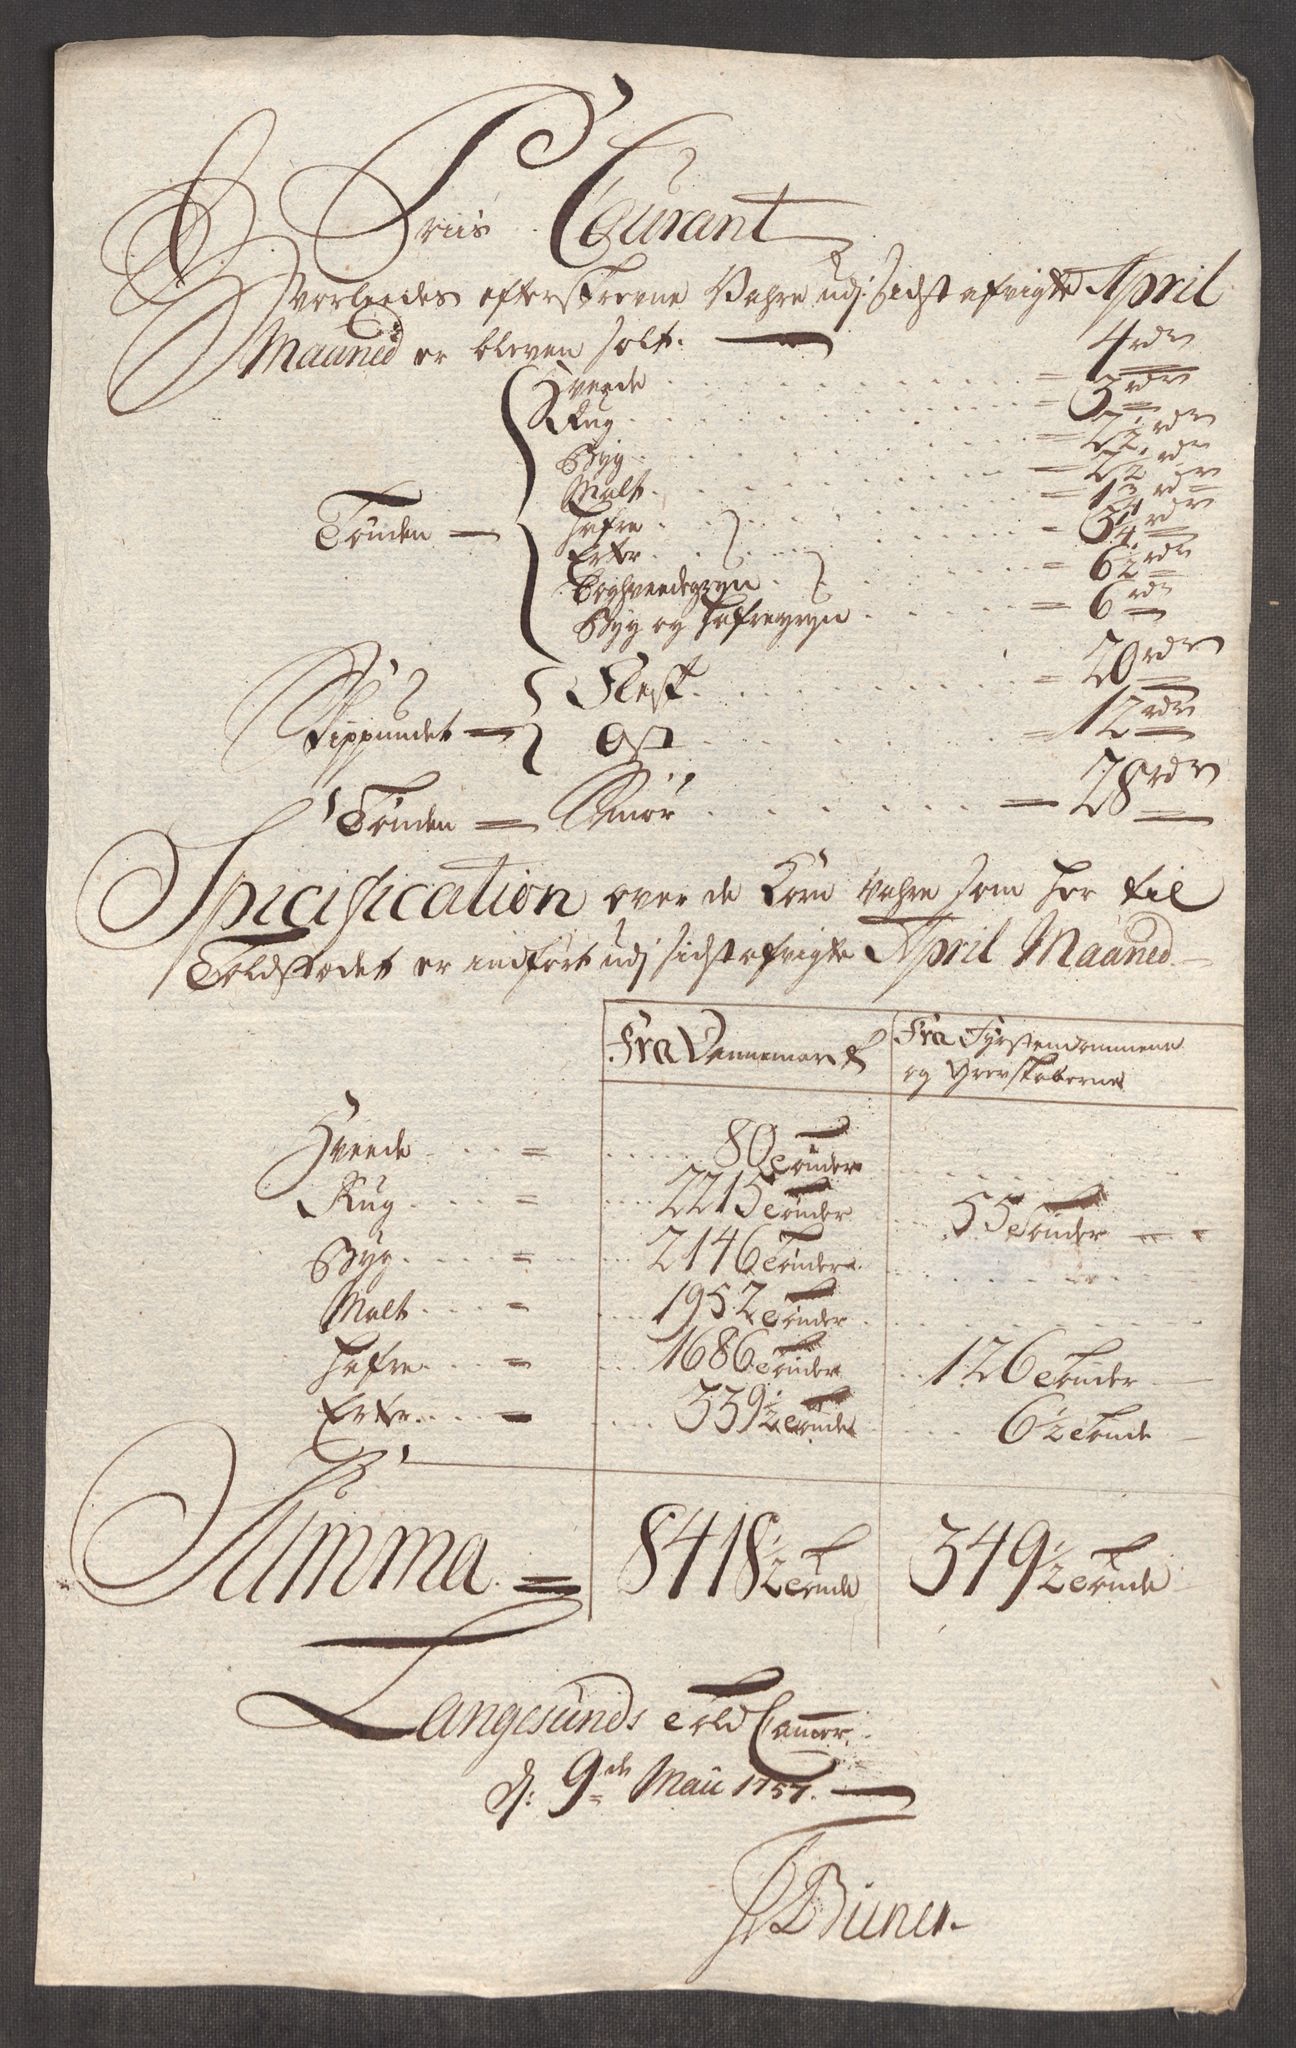 Priis Courant
Hvorleedes efterskrevne Vahre udj sidst afvigte April
Maaned er bleven solt.
Tønden = Hveede = 4 rdr
Rug = 3 rdr
Byg = 2 1/2 rdr
Malt = 2 1/2 rdr
Hafre = 1 3/4 rdr
Erter = 3 1/4 rdr
Boghveedegryn = 6 1/2 rdr
Byg og Hafregryn = 6 rdr
Skippundet = Flesk = 20 rdr
Ost = 12 rdr
Tønden = Smør = 28 rdr
Specification over de Korn Vahre som her til
Toldstædet er indført udj sidstafvigte April Maaned
Fra Dannemark
Fra Fyrstendommene
og Grevskaberne
Hveede = 80 Tønder
Rug = 2215 Tønder 55 Tønder
Byg = 2146 Tønder
Malt = 1952 Tønder
Hafre = 1686 Tønder 126 Tønder
Erter = 339 1/2 Tønde 6 1/2 Tønde
Summa = 8418 1/2 Tønde 349 1/2 Tønde
Langesunds Told Cammer
d: 9de Maii 1757.